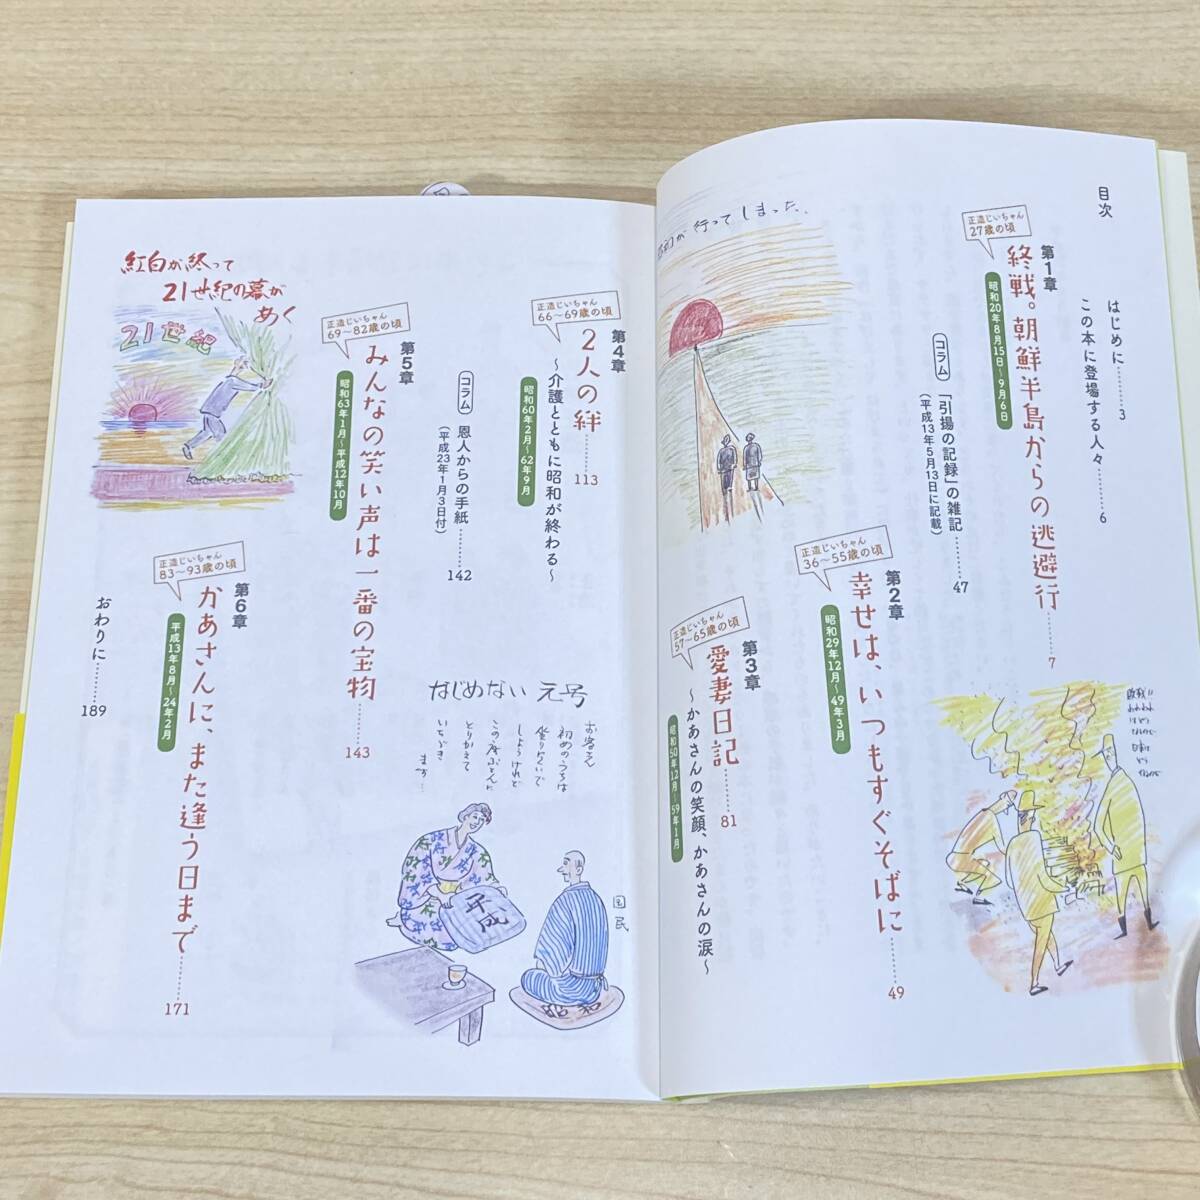 目次
はじめに………3
この本に登場する人々………6
正造じいちゃん
27歳の頃
第1章
終戦。朝鮮半島からの逃避行……7
昭和20年8月15日〜9月6日
コラム 「引揚の記録」の雑記……47
(平成13年5月13日に記載)
正造じいちゃん
36〜55歳の頃
第2章
幸せは、いつもすぐそばに……49
昭和29年12月〜49年3月
正造じいちゃん
57〜65歳の頃
第3章
愛妻日記……81
〜かあさんの笑顔、かあさんの涙〜
昭和50年12月〜59年1月
が行ってしまった。
正造じいちゃん
66〜69歳の頃
第4章
2人の絆……113
〜介護とともに昭和が終わる〜
昭和60年2月〜62年9月
コラム 恩人からの手紙……142
(平成23年1月3日付)
正造じいちゃん
69〜82歳の頃
第5章
みんなの笑い声は一番の宝物……143
昭和63年1月〜平成12年10月
正造じいちゃん
83〜93歳の頃
第6章
かあさんに、また逢う日まで……171
平成13年8月〜24年2月
おわりに………189
紅白が終って
21世紀の幕が
めく
21世紀
なじめない元号
お客さん
初めのうちは
坐りにくいで
しようけれど
この座ぶとんに
とりかえて
いただき
ます…
平成
国民
昭和